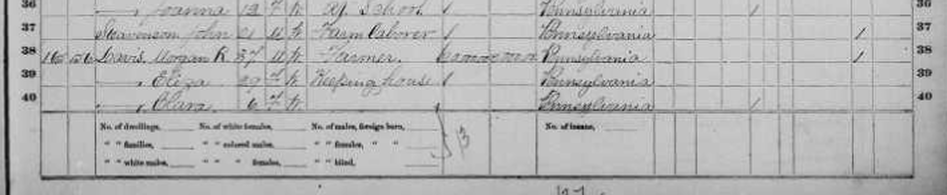 36 Joanna 12 F W At School 1 Pennsylvania 1 36
37 Stevenson John 21 M W Farm Laborer 1 Pennsylvania 1 37
38 Davis Morgan R. 37 M W Farmer Pennsylvania 1 38
39 — Eliza 29 F W Keeping house 1 Pennsylvania 39
40 — Clara 6 F W Pennsylvania 1 40
No. of dwellings, No. of white females, No. of males, foreign born, No. of insane,
" " families, " " colored males, " " females, " "
" " white males, " " " females, " " blind,